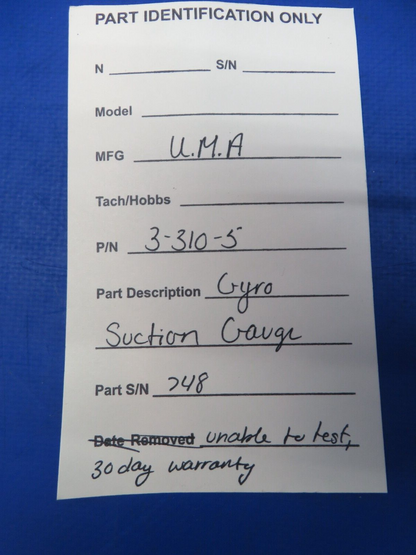 PART IDENTIFICATION ONLY
N ____________ S/N ____________
Model ____________
MFG U.M.A
Tach/Hobbs ____________
P/N 3-310-5
Part Description Gyro
Suction Gauge
Part S/N 748
Date Removed unable to test,
30 day warranty